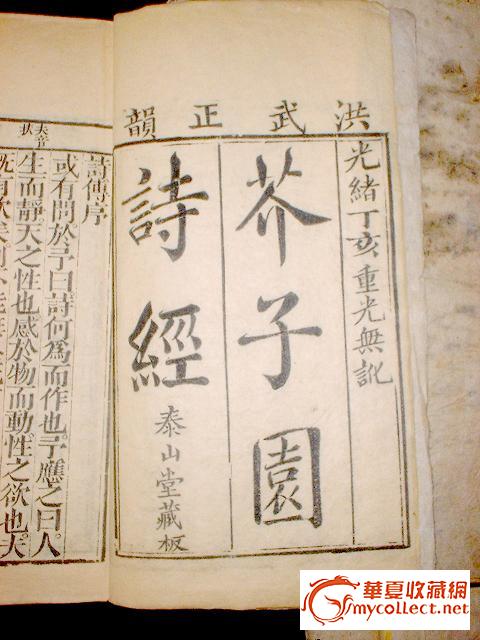 洪武正韻
光緒丁亥重光無訛
芥子園
詩經
泰山堂藏板
詩傳序
或有問於予曰詩何為而作也予應之曰人
生而靜天之性也感於物而動性之欲也夫
華夏收藏網
mycollect.net